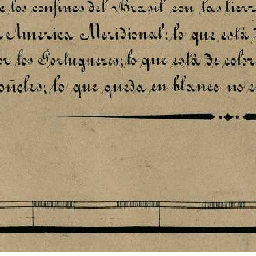 los confines del Brasil con las tierr
America Meridional; lo que está
los Portugueses; lo que está de color
lo que queda en blanco no e